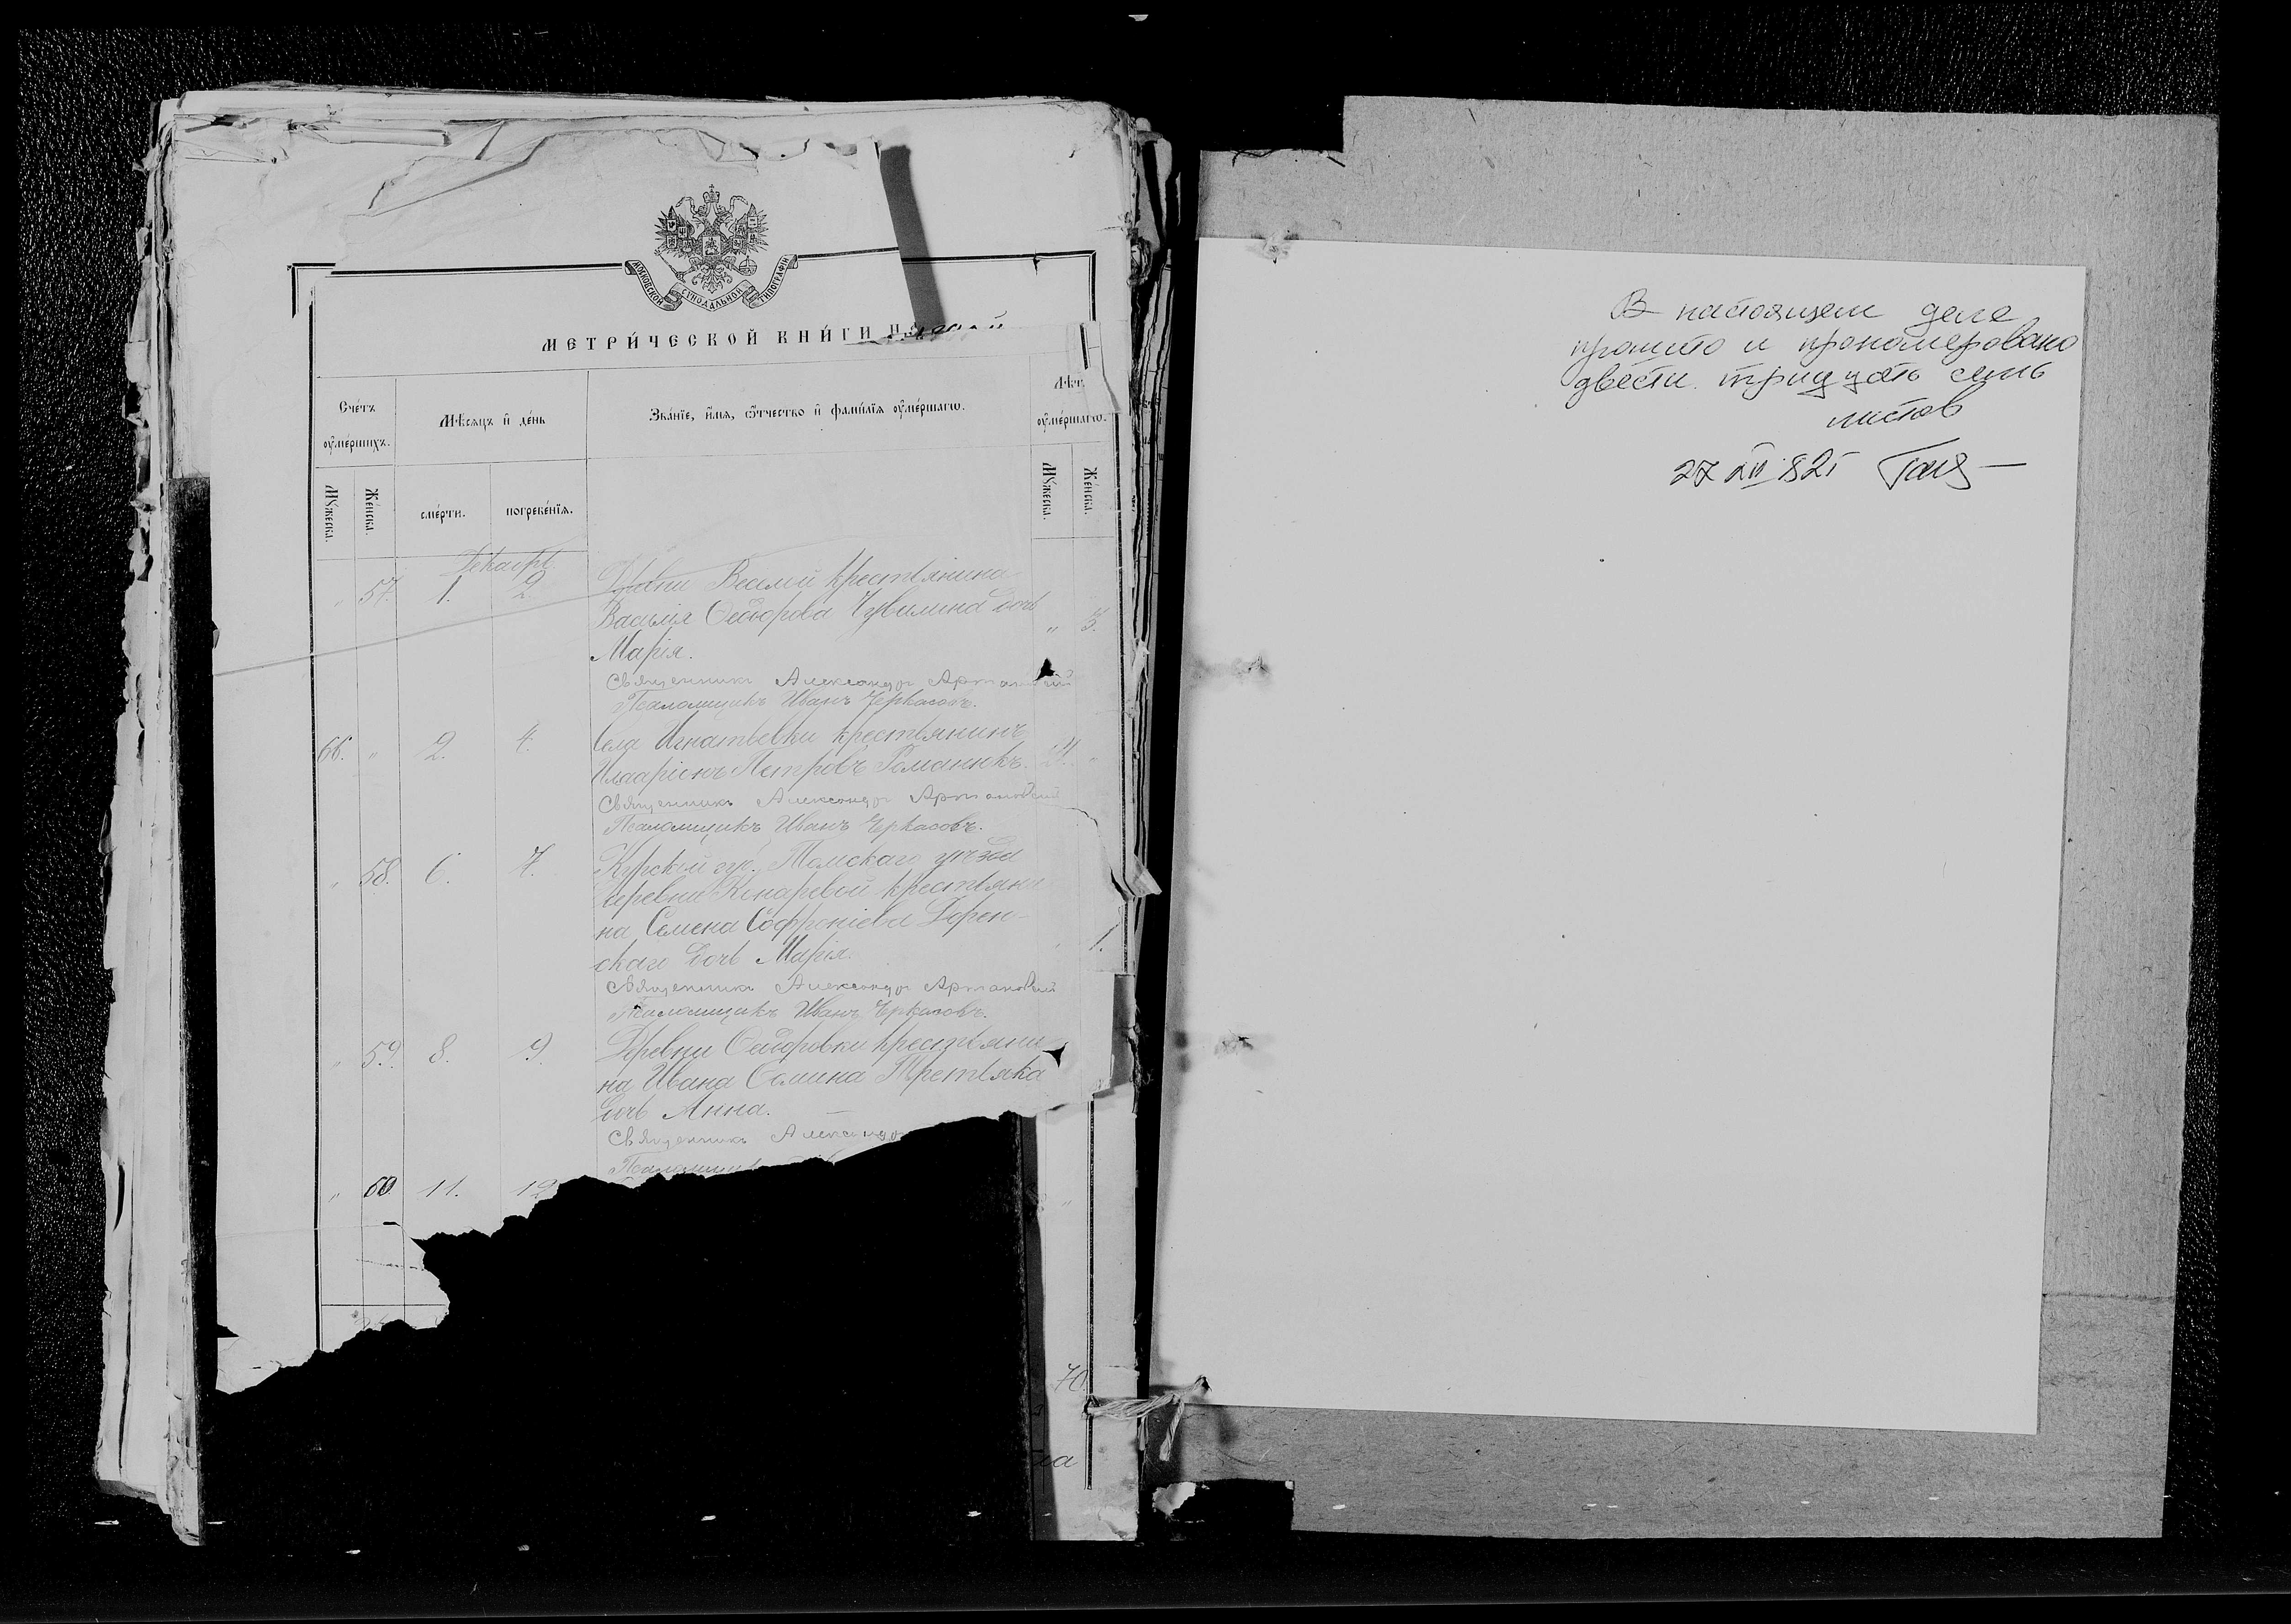 МОСКОВСКОЙ СѴНОДАЛЬНОЙ ТИПОГРАФІИ
МЕТРИ́ЧЕСКОЙ КНИ́ГИ
Сче́тъ ᲂу҆ме́ршихъ.
Мѣ́сѧцъ и҆ де́нь
Зва́нїе, и҆́мѧ, ѻ҆́тчество и҆ фамилїѧ ᲂу҆ме́ршагѡ.
Лѣт
ᲂу҆ме́ршагѡ.
Мꙋ́жеска.
Же́нска.
сме́рти.
погребе́нїѧ.
Мꙋ́жеска.
Же́нска.
Декабрь
" 57. 1. 2. Веселой крестьянина
Василія Ѳеодорова Чувилина дочь " 5.
Марія.
Священникъ Александръ Артановский
Псаломщикъ Иванъ Черкасовъ.
66. " 2. 4. Села Игнатьевки крестьянинъ
Илларіонъ Петровъ Романюкъ. "
Священникъ Александръ Артановский
Псаломщикъ Иванъ Черкасовъ.
" 58. 6. 7. Курской губ. Томскаго уѣзда
деревни Конаревой крестьяни
на Семена Софроніева Дорен-
скаго дочь Марія. " 1.
Священникъ Александръ Артановский
Псаломщикъ Иванъ Черкасовъ.
" 59. 8. 9. Деревни Ѳеодоровки крестьяни
на Ивана Ѳомина Третьяка
дочь Анна.
Священникъ Александръ
Псаломщикъ
" 60. 11. 12
70
на
В настоящем деле
прошито и прономеровано
двести тридцать семь
листов
27 XII 82г